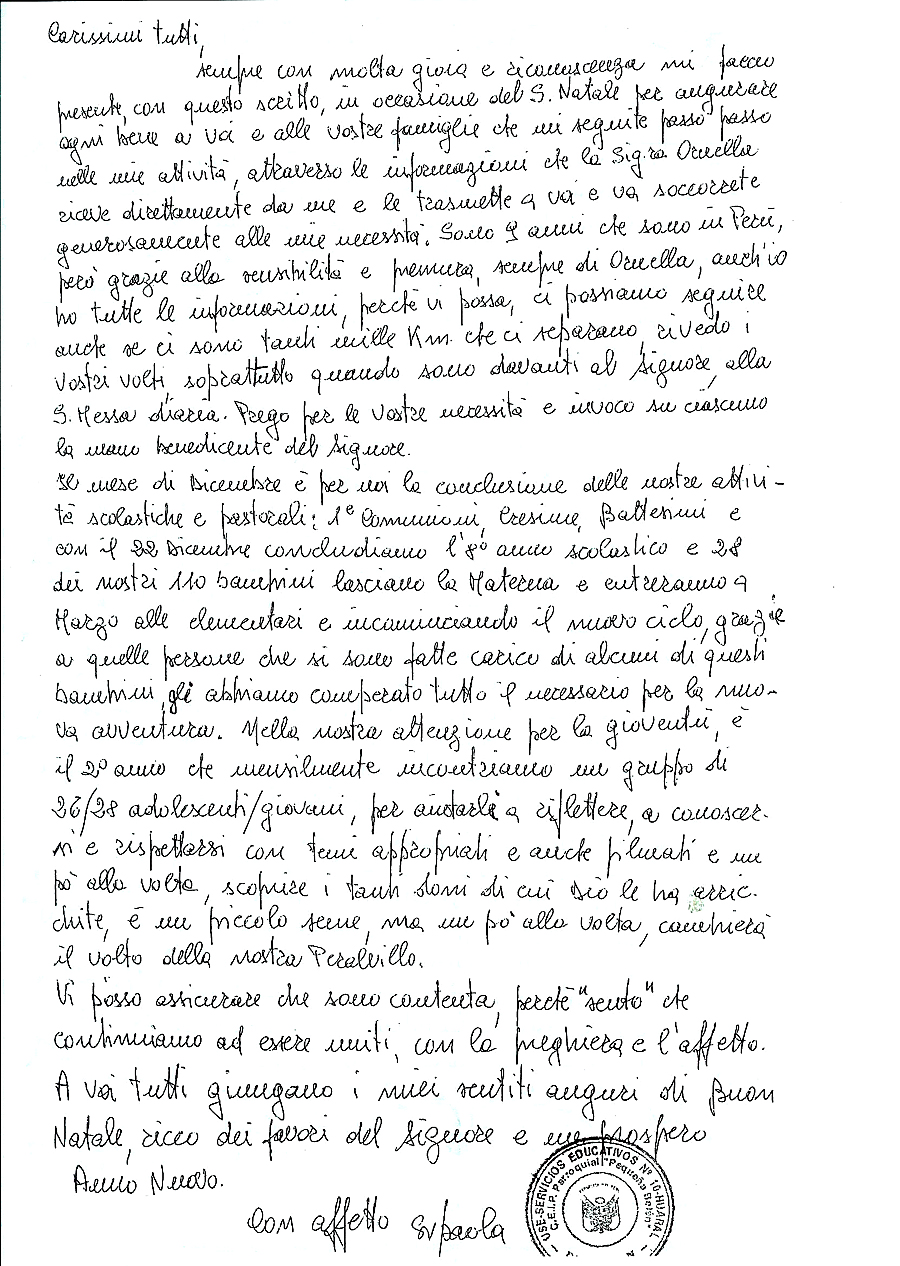 Carissimi tutti,
sempre con molta gioia e riconoscenza mi faccio
presente, con questo scritto, in occasione del S. Natale per augurare
ogni bene a voi e alle vostre famiglie che mi seguite passo passo
nelle mie attività, attraverso le informazioni che la Sig.ra Ornella
riceve direttamente da me e le trasmette a voi e va soccorrete
generosamente alle mie necessità. Sono 9 anni che sono in Perù,
però grazie alla sensibilità e premura, sempre di Ornella, anch'io
ho tutte le informazioni, perchè vi possa, ci possiamo seguire
anche se ci sono tanti mille Km. che ci separano, rivedo i
vostri volti, soprattutto quando sono davanti al Signore, alla
S. Messa diaria. Prego per le vostre necessità e invoco su ciascuno
la mano benedicente del Signore.
Il mese di Dicembre è per noi la conclusione delle nostre attivi-
tà scolastiche e pastorali: 1e Comunioni, Cresime, Battesimi e
con il 22 Dicembre concludiamo l'8º anno scolastico e 28
dei nostri 110 bambini lasciano la Materna e entreranno a
Marzo alle elementari e incominciando il nuovo ciclo, grazie
a quelle persone che si sono fatte carico di alcuni di questi
bambini, gli abbiamo comperato tutto il necessario per la nuo-
va avventura. Nella nostra attenzione per la gioventù, è
il 2º anno che mensilmente incontriamo un gruppo di
26/28 adolescenti/giovani, per aiutarli a riflettere, a conoscer-
si e rispettarsi con temi appropriati e anche filmati e un
pò alla volta, scoprire i tanti doni di cui Dio le ha arric-
chite, è un piccolo seme, ma un pò alla volta, cambierà
il volto della nostra Peralvillo.
Vi posso assicurare che sono contenta, perchè "sento" che
continuiamo ad essere uniti, con la preghiera e l'affetto.
A voi tutti giungano i miei sentiti auguri di Buon
Natale, ricco dei favori del Signore e un prospero
Anno Nuovo.
Con affetto Sr paola
USE-SERVICIOS EDUCATIVOS Nº 10-HUARAL
C.E.I.P. Parroquial "Pequeña Belén"